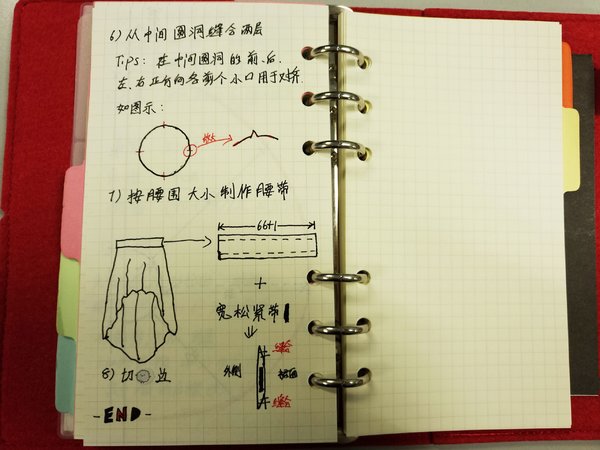 6) 从中间圆洞缝合两层
Tips: 在中间圆洞的前、后、
左、右正方向各剪个小口用于对齐.
如图示:
放大
7) 按腰围大小制作腰带
66+1
+
宽松紧带
缝合
外侧
缝合
8) 切 边
-END-